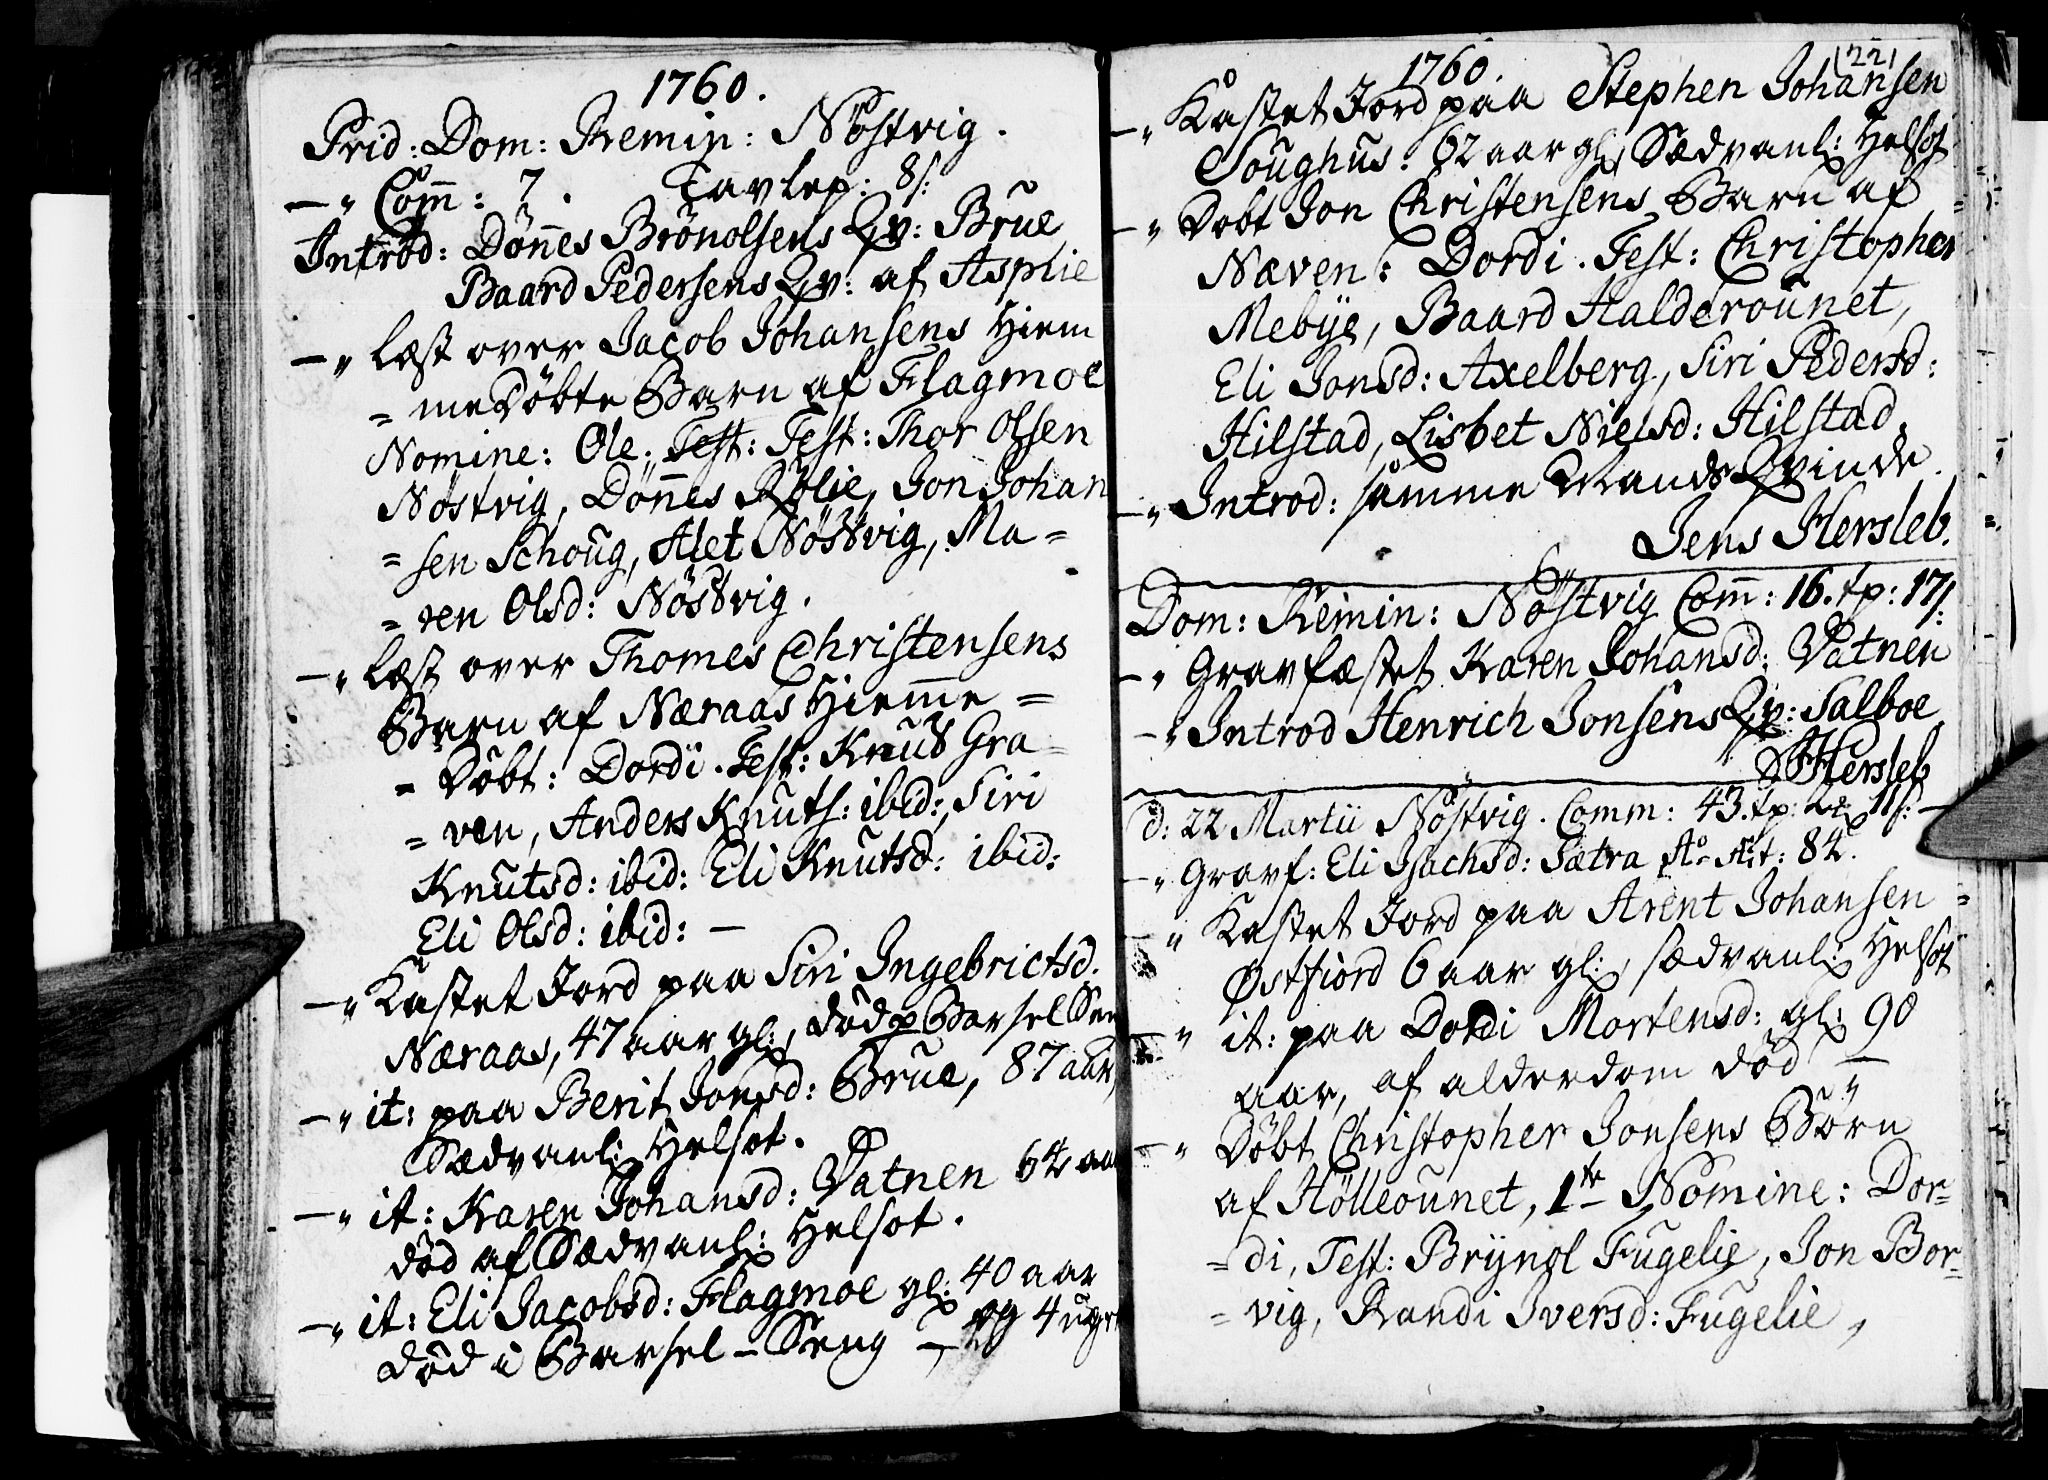 1760.
Prid: Dom: Remin: Nöstvig.
–„ Com̄: 7. Tavlep: 8 s:
Introd: Dön̄es Brönolsens Qv: Brue
Baard Pedersens Qv: af Asplie
–„ læst over Jacob Johansens Hiem
= medöbte Barn af Flagmoe
Nomine: Ole. Test: Test: Thor Olsen
Nöstvig, Dön̄es Rölie, Jon Johan
= sen Schoug, Alet Nöstvig, Ma=
= ren Olsd: Nöstvig.
–„ læst over Thomes Christensens
Barn af Næraas Hiem̄e=
= döbt: Dordi. Test: Knut Gra=
= ven, Anders Knuts: ibid:, Siri
Knutsd: ibid: Eli Knutsd: ibid:
Eli Olsd: ibid: –
–„ Kastet Jord paa Siri Ingebrictsd.
Næraas, 47 aar gl:, död p Barsel Sen
–„ it: paa Berit Jonsd: Brue, 87 aar,
Sædvanl: Helsot.
–„ it: Karen Johansd: Vatnen 64 aa
död af Sædvanl: Helsot.
–„ it: Eli Jacobsd: Flagmoe gl: 40 aar
död i Barsel-Seng – og 4 uger
1760. (221
–„ Kastet Jord paa Stephen Johansen
Soughus: 62 aar gl, Sædvanl: Helsot
–„ Döbt Jon Christensens Barn af =
Næven: Dordi. Test: Christopher
Mebye, Baard Halderounet,
Eli Jonsd: Axelberg, Siri Pedersd:
Hilstad, Lisbet Nielsd: Hilstad.
–„ Introd: samme Mands Qvinde.
Jens Hersleb.
Dom: Remin: Nöstvig Com̄: 16. tp: 17 s:
–„ Gravfæstet Karen Johansd: Vatnen
–„ Introd Henrich Jonsens Qv: Salboe
JHersleb
d: 22 Martii Nöstvig. Comm: 43. tp: 11 s: –
–„ Gravf: Eli Isachsd: Sætra Ao Æt: 82.
–„ Kastet Jord paa Arent Johansen =
Østfiord 6 aar gl:, sædvanl: Helsot
–„ it: paa Dordi Mortensd: gl: 90
aar, af alderdom död –„
–„ Döbt Christopher Jonsens Börn
af Hölleounet, 1te Nomine: Dor=
= di, Test: Brynol Fugelie, Jon Bor=
= vig, Randi Iversd: Fugelie,